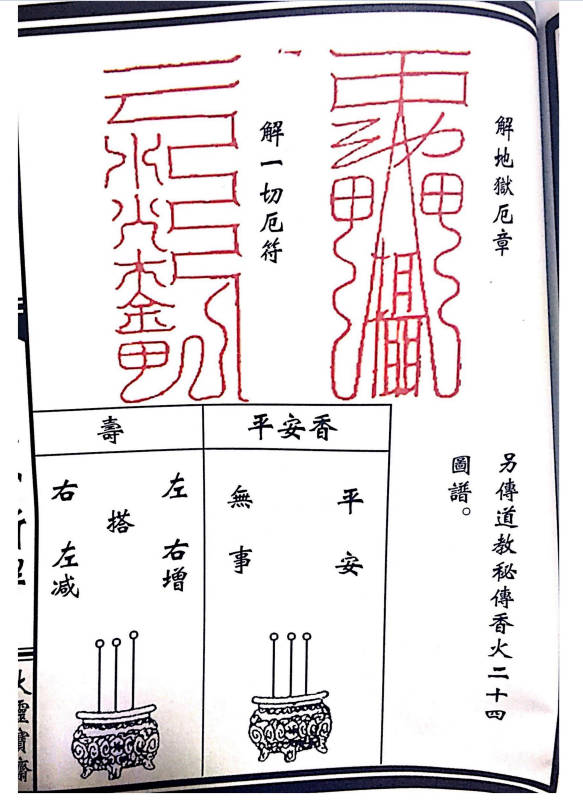 解地獄厄章
解一切厄符
另傳道教秘傳香火二十四
圖譜。
平安香
平安
無事
壽
左 右增
搭
右 左减
靈寶齋